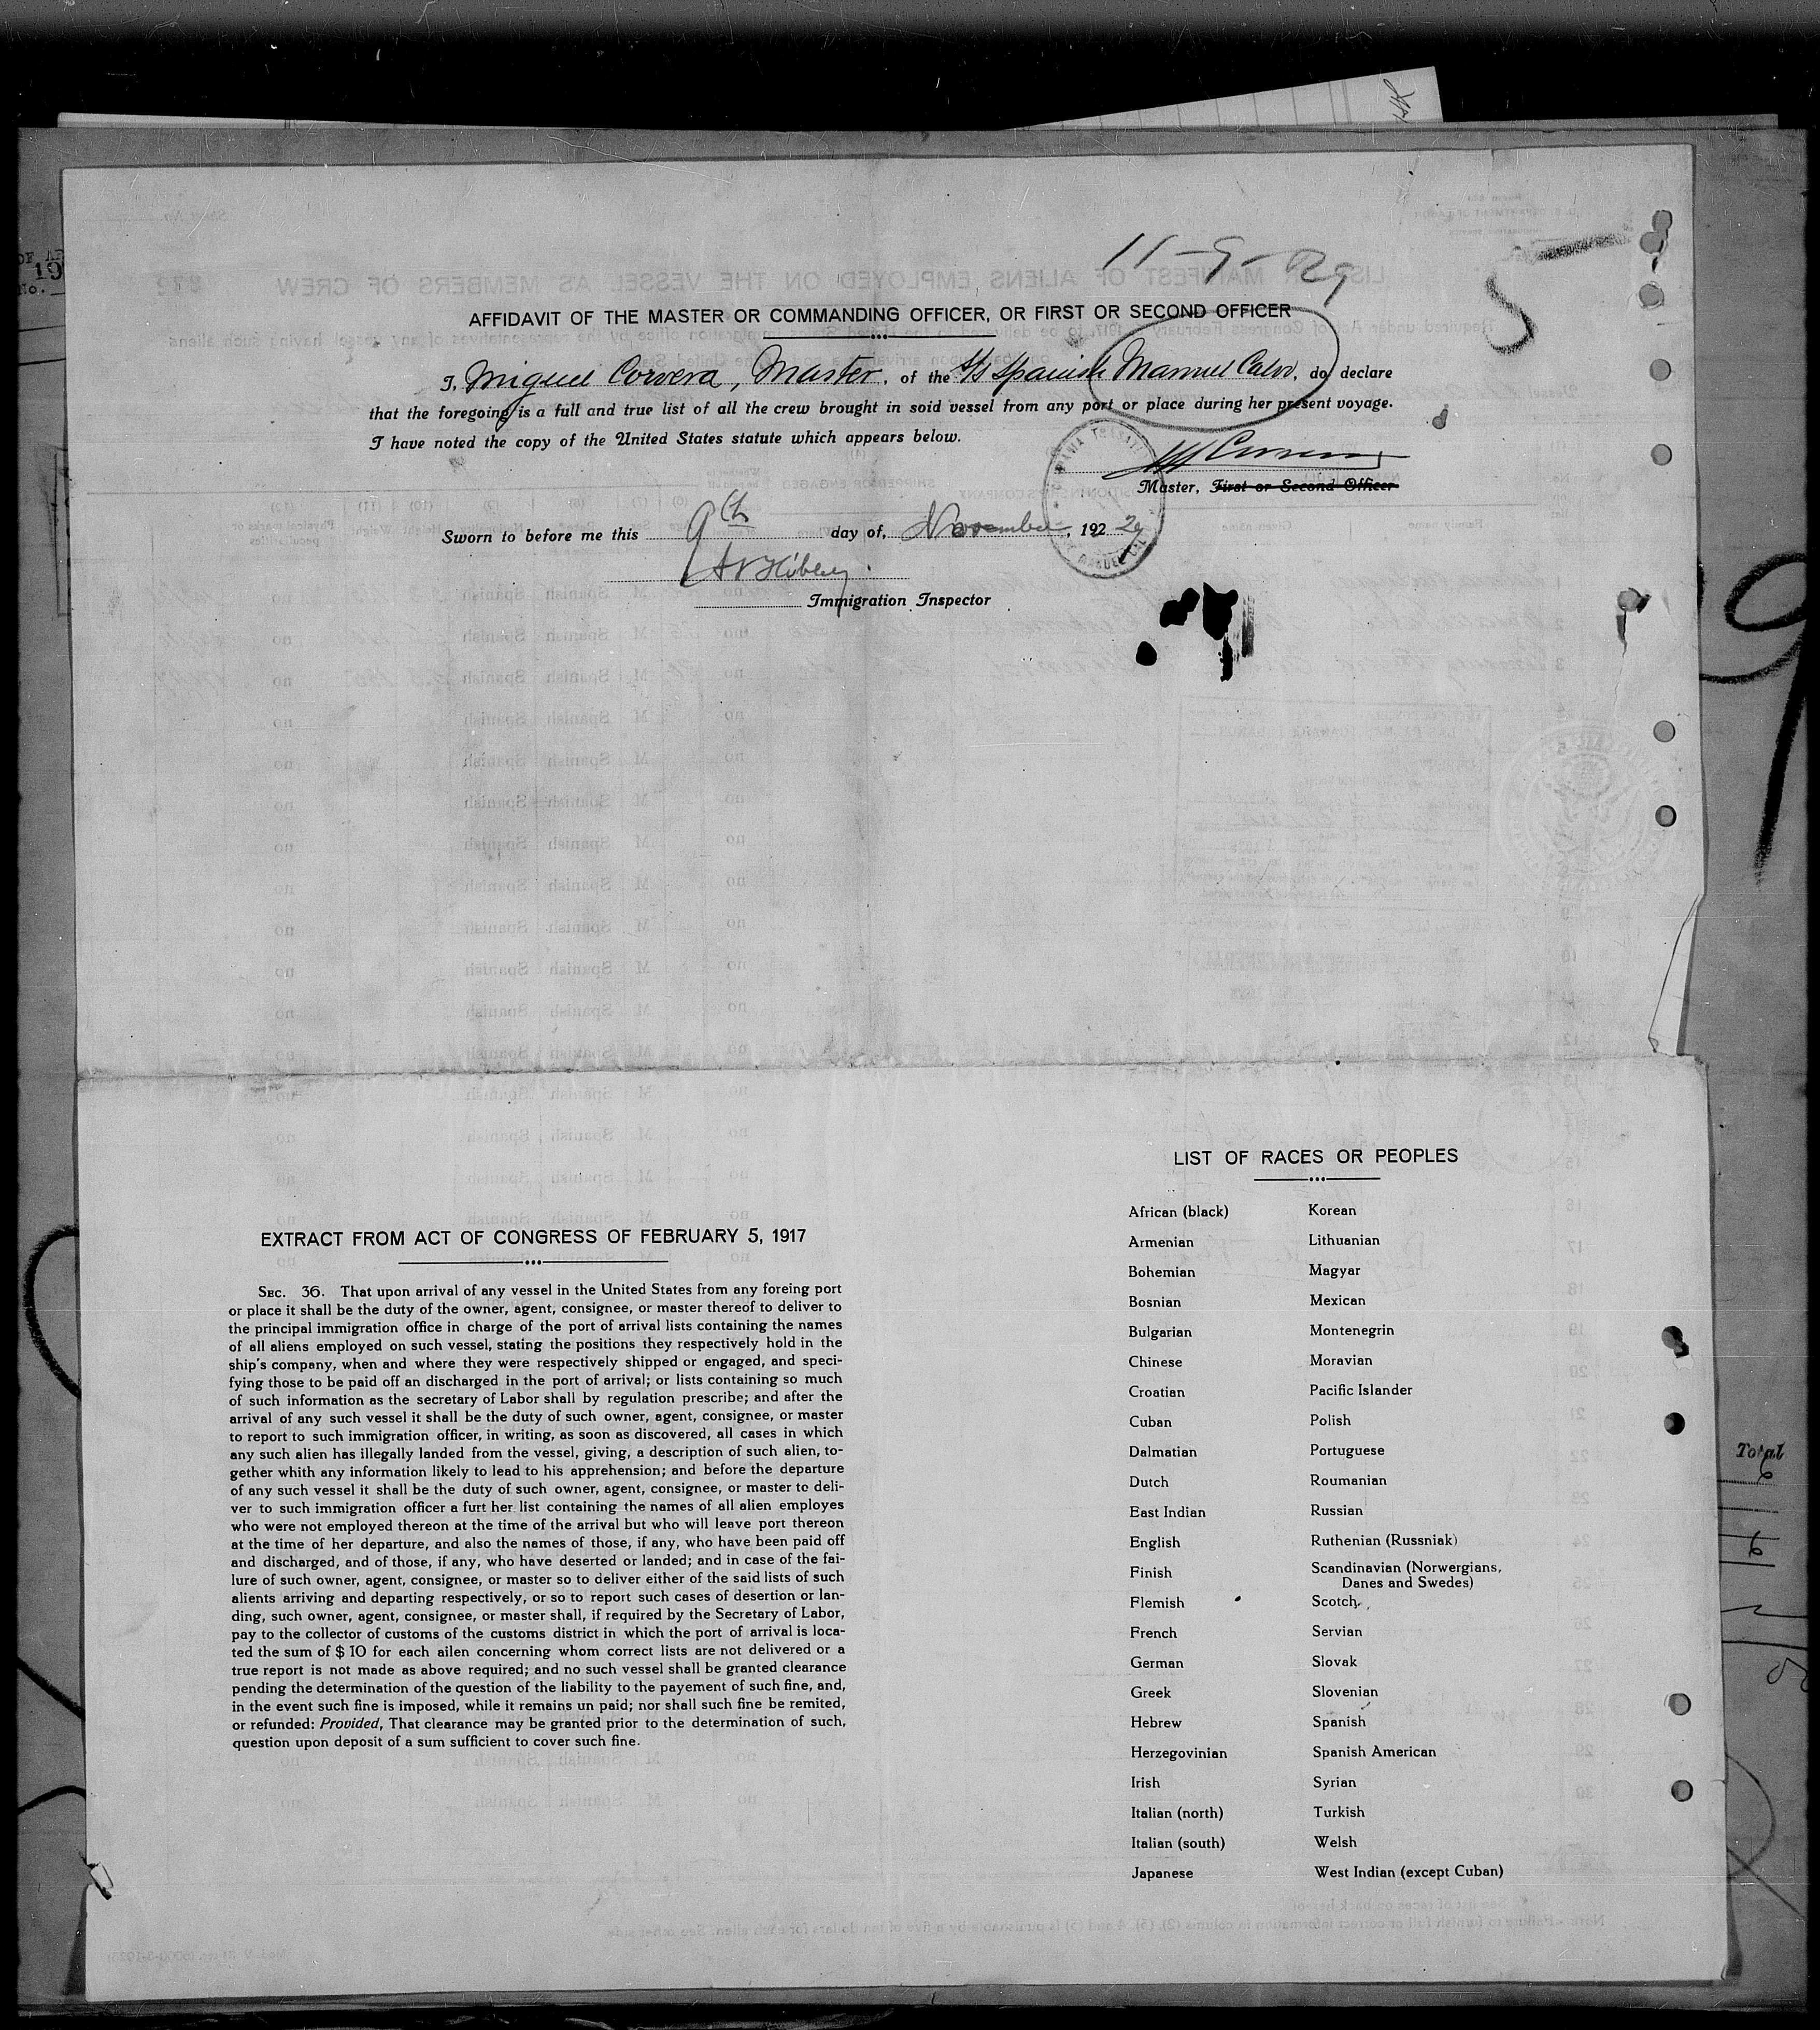 11-9-29
5
AFFIDAVIT OF THE MASTER OR COMMANDING OFFICER, OR FIRST OR SECOND OFFICER
I, Miguel Corvera, Master, of the S/s Spanish Manuel Calvo, do declare
that the foregoing is a full and true list of all the crew brought in soid vessel from any port or place during her present voyage.
I have noted the copy of the United States statute which appears below.
Master, First or Second Officer
Sworn to before me this 9th day of, November, 192 29
Immigration Inspector
LIST OF RACES OR PEOPLES
African (black) Korean
Armenian Lithuanian
Bohemian Magyar
Bosnian Mexican
Bulgarian Montenegrin
Chinese Moravian
Croatian Pacific Islander
Cuban Polish
Dalmatian Portuguese
Dutch Roumanian
East Indian Russian
English Ruthenian (Russniak)
Finish Scandinavian (Norwergians,
Danes and Swedes)
Flemish Scotch
French Servian
German Slovak
Greek Slovenian
Hebrew Spanish
Herzegovinian Spanish American
Irish Syrian
Italian (north) Turkish
Italian (south) Welsh
Japanese West Indian (except Cuban)
EXTRACT FROM ACT OF CONGRESS OF FEBRUARY 5, 1917
SEC. 36. That upon arrival of any vessel in the United States from any foreing port
or place it shall be the duty of the owner, agent, consignee, or master thereof to deliver to
the principal immigration office in charge of the port of arrival lists containing the names
of all aliens employed on such vessel, stating the positions they respectively hold in the
ship's company, when and where they were respectively shipped or engaged, and speci-
fying those to be paid off an discharged in the port of arrival; or lists containing so much
of such information as the secretary of Labor shall by regulation prescribe; and after the
arrival of any such vessel it shall be the duty of such owner, agent, consignee, or master
to report to such immigration officer, in writing, as soon as discovered, all cases in which
any such alien has illegally landed from the vessel, giving, a description of such alien, to-
gether whith any information likely to lead to his apprehension; and before the departure
of any such vessel it shall be the duty of such owner, agent, consignee, or master to deli-
ver to such immigration officer a furt her list containing the names of all alien employes
who were not employed thereon at the time of the arrival but who will leave port thereon
at the time of her departure, and also the names of those, if any, who have been paid off
and discharged, and of those, if any, who have deserted or landed; and in case of the fai-
lure of such owner, agent, consignee, or master so to deliver either of the said lists of such
alients arriving and departing respectively, or so to report such cases of desertion or lan-
ding, such owner, agent, consignee, or master shall, if required by the Secretary of Labor,
pay to the collector of customs of the customs district in which the port of arrival is loca-
ted the sum of $ 10 for each ailen concerning whom correct lists are not delivered or a
true report is not made as above required; and no such vessel shall be granted clearance
pending the determination of the question of the liability to the payement of such fine, and,
in the event such fine is imposed, while it remains un paid; nor shall such fine be remited,
or refunded: Provided, That clearance may be granted prior to the determination of such,
question upon deposit of a sum sufficient to cover such fine.
Total